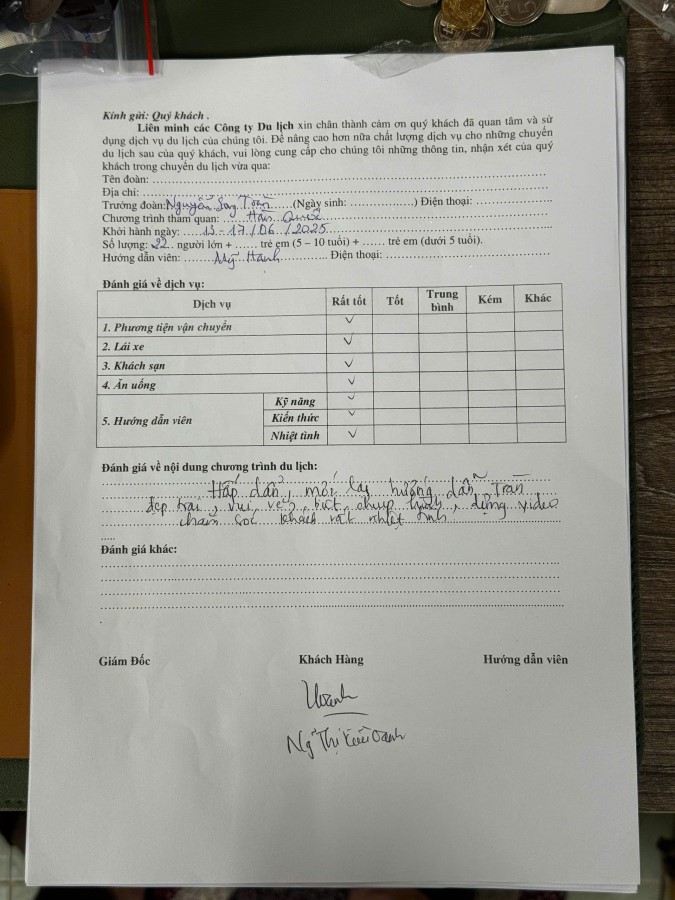 Kính gửi: Quý khách .
Liên minh các Công ty Du lịch xin chân thành cám ơn quý khách đã quan tâm và sử
dụng dịch vụ du lịch của chúng tôi. Để nâng cao hơn nữa chất lượng dịch vụ cho những chuyến
du lịch sau của quý khách, vui lòng cung cấp cho chúng tôi những thông tin, nhận xét của quý
khách trong chuyến du lịch vừa qua:
Tên đoàn:
Địa chỉ:
Trưởng đoàn: Nguyễn Song Toàn (Ngày sinh: ) Điện thoại:
Chương trình tham quan: Hàn Quốc
Khởi hành ngày: 13 - 17/06/2025
Số lượng: 22 người lớn + ...... trẻ em (5 – 10 tuổi) + ...... trẻ em (dưới 5 tuổi).
Hướng dẫn viên: Mỹ Hạnh Điện thoại:
Đánh giá về dịch vụ:
Dịch vụ Rất tốt Tốt Trung bình Kém Khác
1. Phương tiện vận chuyển ✓
2. Lái xe ✓
3. Khách sạn ✓
4. Ăn uống ✓
5. Hướng dẫn viên Kỹ năng ✓
Kiến thức ✓
Nhiệt tình ✓
Đánh giá về nội dung chương trình du lịch:
Hấp dẫn, mới lạ, hướng dẫn
đẹp trai, vui vẻ, biết chụp hình, dựng video
chăm sóc khách rất nhiệt tình
Đánh giá khác:
Giám Đốc Khách Hàng Hướng dẫn viên
Ng Thị Kiều Oanh